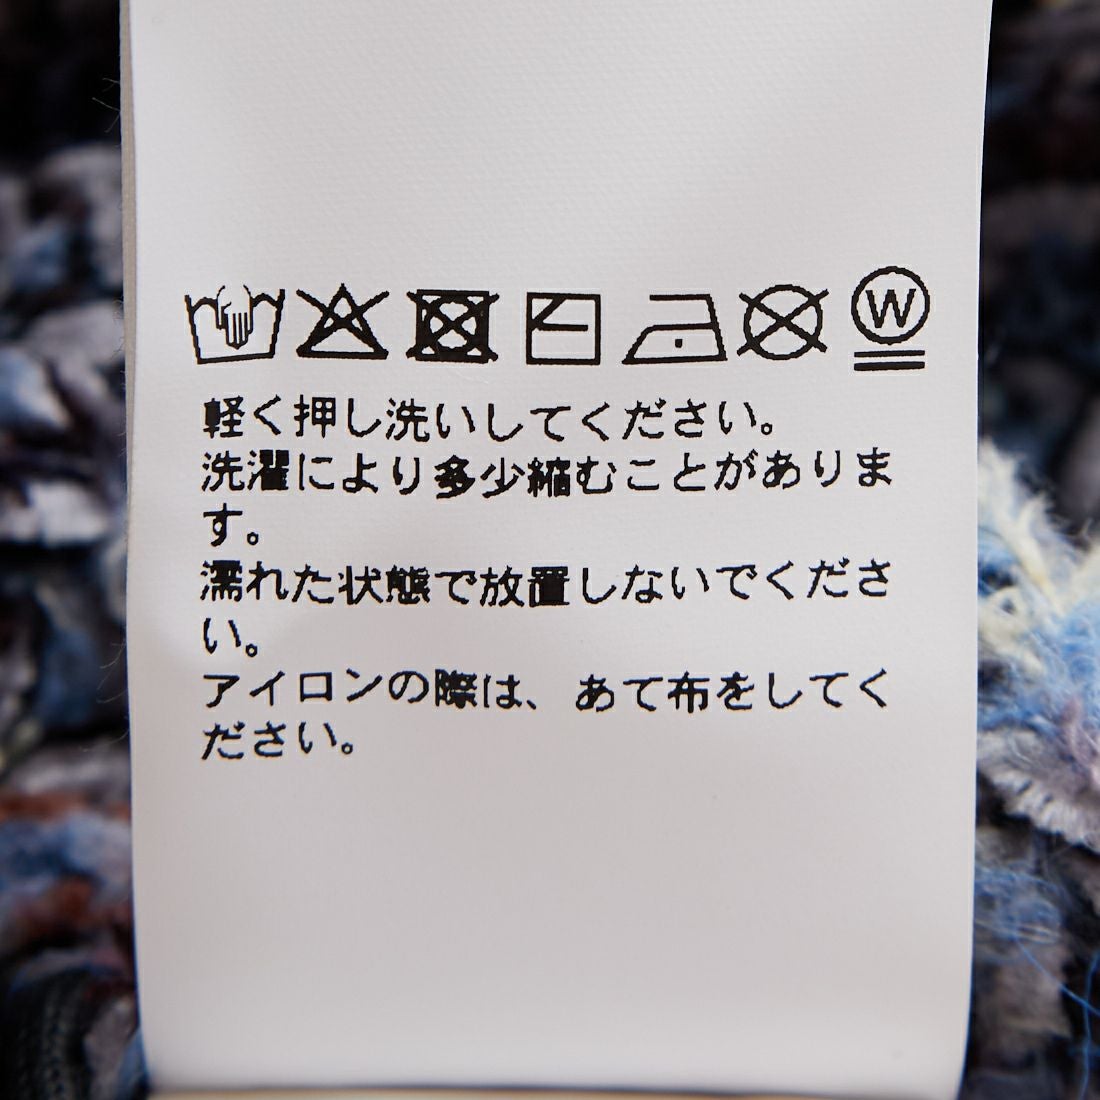 W
軽く押し洗いしてください。
洗濯により多少縮むことがありま
す。
濡れた状態で放置しないでくださ
い。
アイロンの際は、あて布をしてく
ださい。